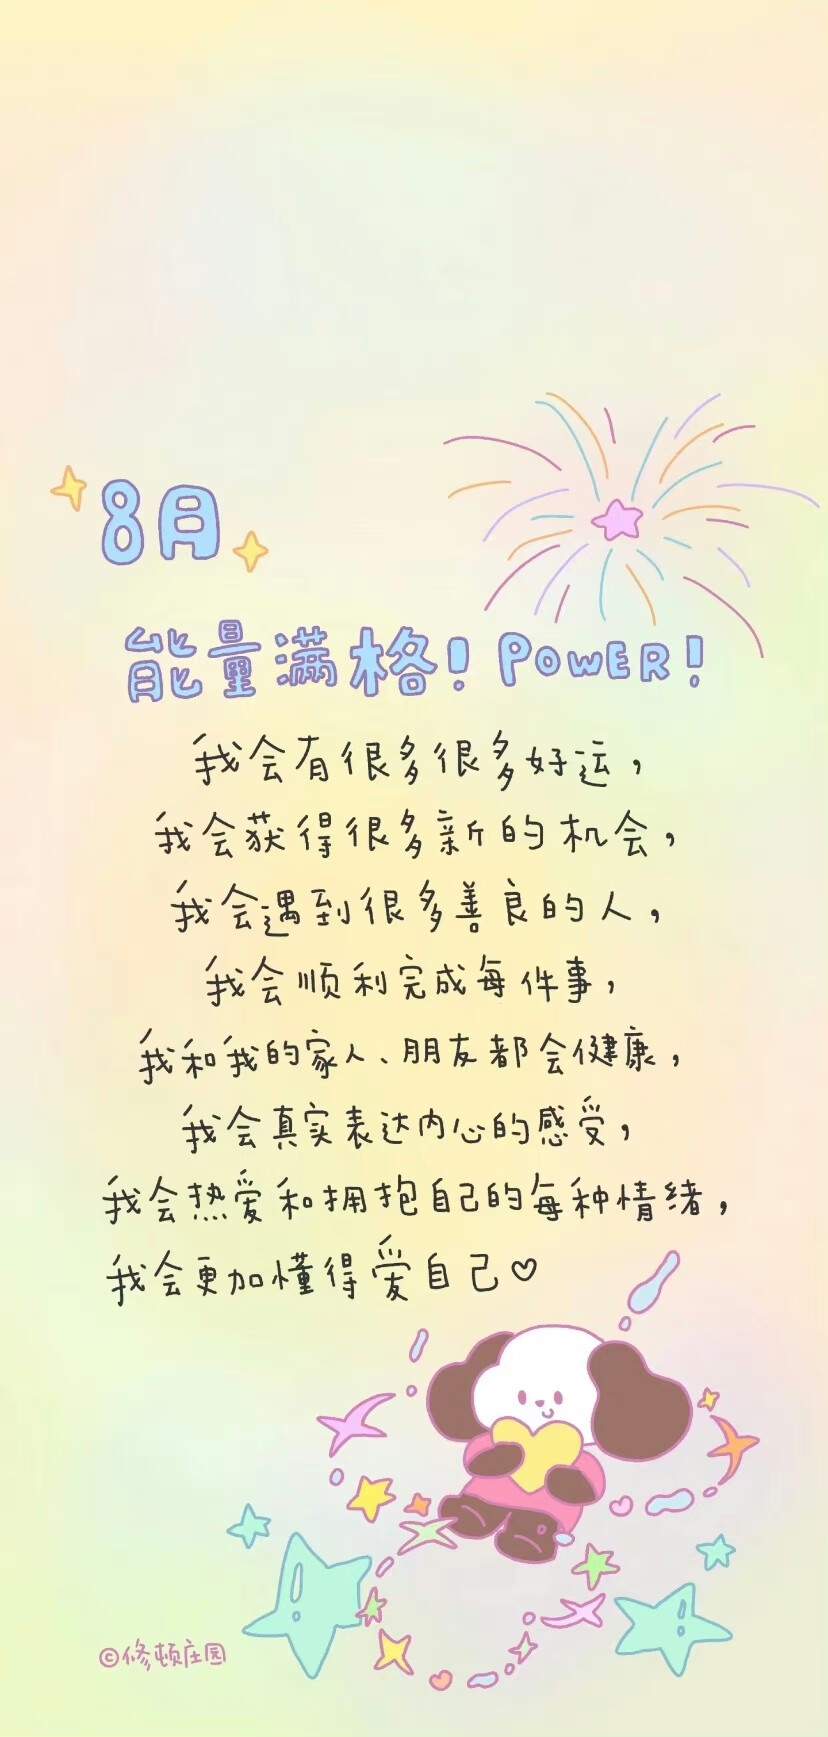 8月
能量满格！POWER！
我会有很多很多好运，
我会获得很多新的机会，
我会遇到很多善良的人，
我会顺利完成每件事，
我和我的家人、朋友都会健康，
我会真实表达内心的感受，
我会热爱和拥抱自己的每种情绪，
我会更加懂得爱自己♡
©修顿庄园